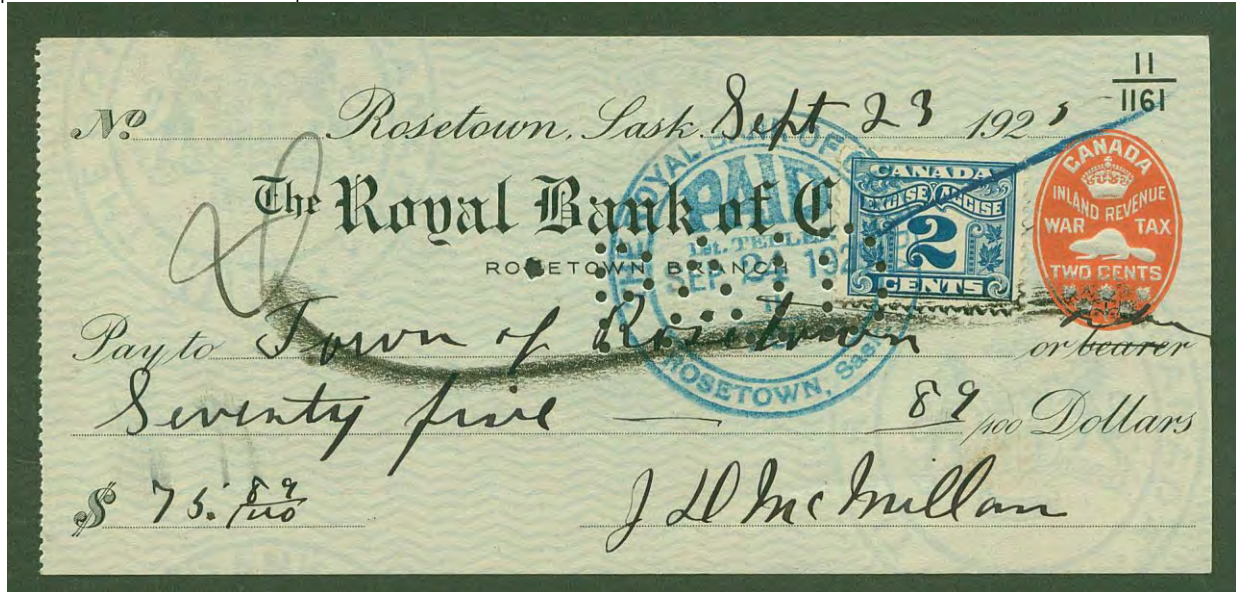 11
1161
No Rosetown, Sask. Sept 23 192
The Royal Bank of C
ROSETOWN BRANCH
ROYAL BANK OF
PAID
1st. TELLER
SEP 24 192
ROSETOWN, Sask
CANADA
EXCISE ACCISE
2
CENTS
CANADA
INLAND REVENUE
WAR TAX
TWO CENTS
Pay to Town of Rosetown or bearer
Seventy five — 89/100 Dollars
$ 75. 89/100
J D McMillan